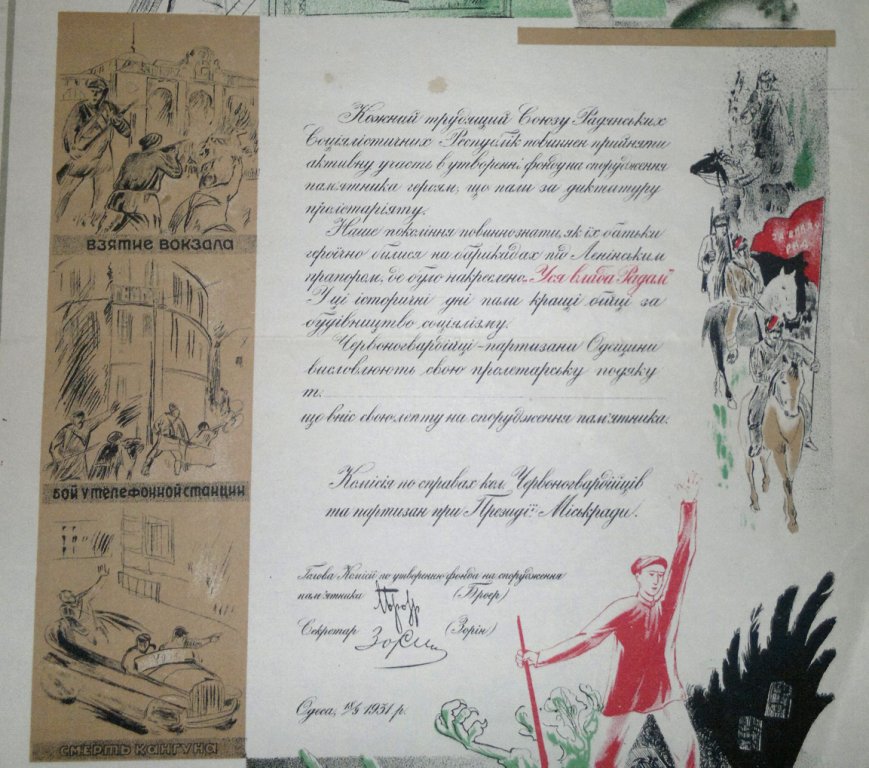 ВЗЯТИЕ ВОКЗАЛА
БОЙ У ТЕЛЕФОННОЙ СТАНЦИИ
СМЕРТЬ КАНГУНА
Кожний трудящий Союзу Радянських
Соціялістичних Республік повиннен прийняти
активну участь в утворенні фонду на спорудження
пам'ятника героям, що пали за диктатуру
пролетаріяту.
Наше покоління повинно знати, як їх батьки
героїчно билися на барикадах під Ленінським
прапором, де було накреслено „Уся влада Радам"
У ці історичні дні пали кращі бійці за
будівництво соціялізму.
Червоногвардійці-партизани Одещини
висловлюють свою пролетарську подяку
т.
що вніс свою лепту на спорудження пам'ятника.
Комісія по справах кол. Червоногвардійців
та партизан при Президії Міськради.
Голова Комісії по утворенню фонда на спорудження
пам'ятника (Броєр)
Секретар (Зорін)
Одеса, 1931 р.
ЗА ВЛАДУ
РАД